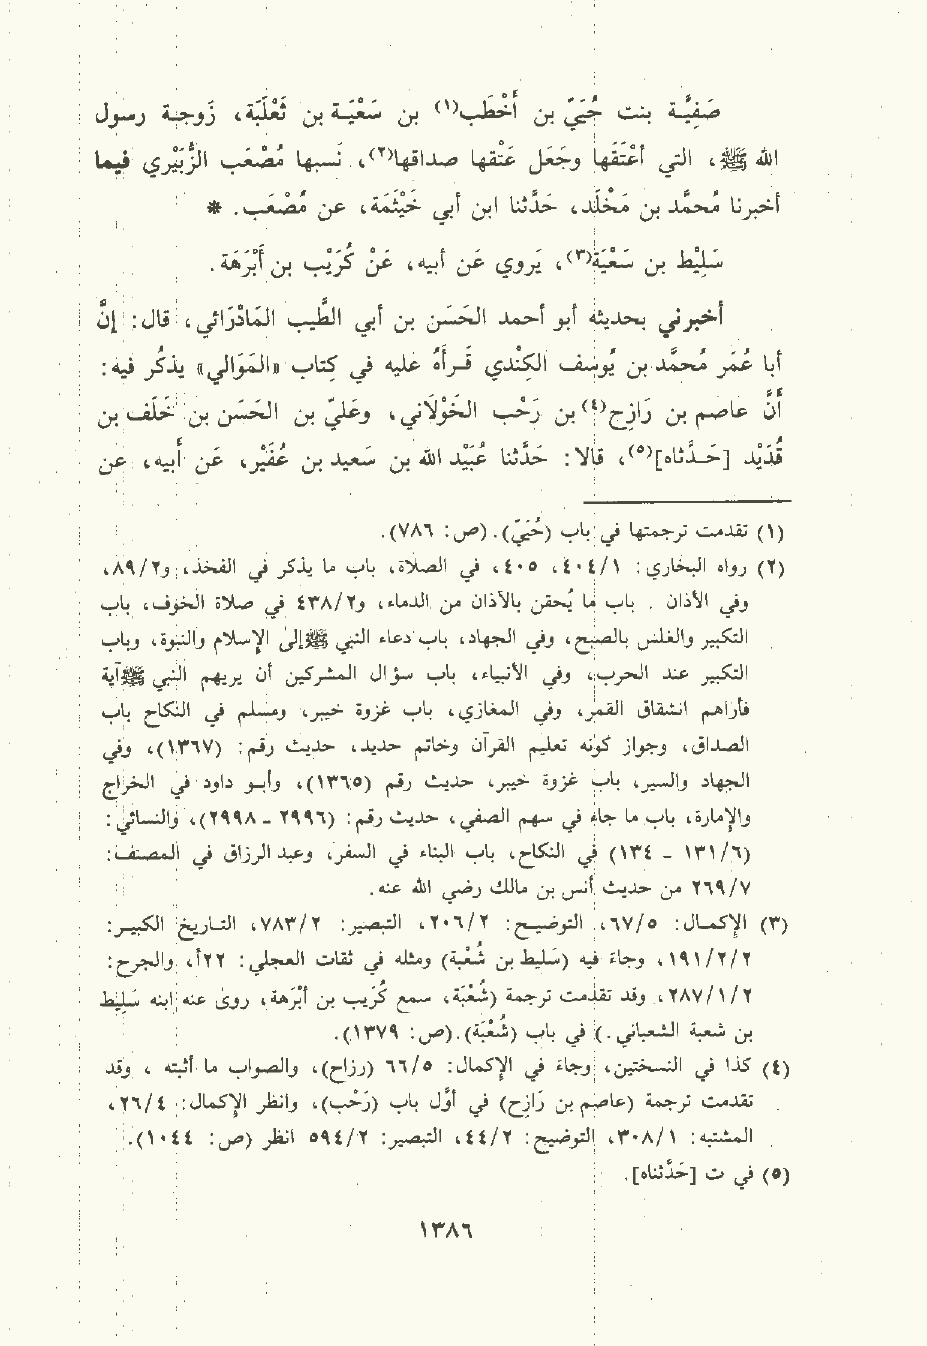 صَفِيَّـة بنت حُيَيّ بن أَخْطَب(١) بن سَعْيَـة بن ثَعْلَبَة، زَوجـة رسول
الله ﷺ، التي أَعْتَقَها وجَعَل عَتْقها صداقها(٢)، نَسبها مُصْعَب الزُّبَيْري فيما
أخبرنا مُحمَّد بن مَخْلَد، حَدَّثنا ابن أبي خَيْثَمَة، عن مُصْعَب. *
سَلِيْط بن سَعْيَة(٣)، يَروي عَن أبيه، عَنْ كُرَيْب بن أَبْرَهَة.
أخبرني بحديثه أبو أحمد الحَسَن بن أبي الطَّيب المَاذْرَائي، قال: إنَّ
أبا عُمَر مُحمَّد بن يُوسف الكِنْدي قَـرأَهُ عليه في كِتاب «المَوَالي» يذكُر فيه:
أَنَّ عاصم بن رَازِح(٤) بن رَحْب الخَوْلاَني، وعَليّ بن الحَسَن بن خَلَف بن
قُدَيْد [حَـدَّثاه](٥)، قالا: حَدَّثنا عُبَيْد الله بن سَعيد بن عُفَيْر، عَن أَبيه، عن
(١) تقدمت ترجمتها في باب (حُيَيّ).(ص: ٧٨٦).
(٢) رواه البخاري: ٤٠٤/١، ٤٠٥، في الصلاة، باب ما يذكر في الفخذ، و٨٩/٢،
وفي الأذان. باب ما يُحقن بالأذان من الدماء، و٤٣٨/٢ في صلاة الخوف، باب
التكبير والغلس بالصبح، وفي الجهاد، باب دعاء النبي ﷺ إلىٰ الإسلام والنبوة، وباب
التكبير عند الحرب، وفي الأنبياء، باب سؤال المشركين أن يريهم النبي ﷺ آية
فأراهم انشقاق القمر، وفي المغازي، باب غزوة خيبر، ومسلم في النكاح باب
الصداق، وجواز كونه تعليم القرآن وخاتم حديد، حديث رقم: (١٣٦٧)، وفي
الجهاد والسير، باب غزوة خيبر، حديث رقم (١٣٦٥)، وأبـو داود في الخراج
والإمارة، باب ما جاء في سهم الصفي، حديث رقم: (٢٩٩٦ - ٢٩٩٨)، والنسائي:
(١٣١/٦ - ١٣٤) في النكاح، باب البناء في السفر، وعبد الرزاق في المصنف:
٢٦٩/٧ من حديث أنس بن مالك رضي الله عنه.
(٣) الإكمـال: ٦٧/٥، التوضيـح: ٢٠٦/٢، التبصير: ٧٨٣/٢، التـاريخ الكبيـر:
١٩١/٢/٢، وجاء فيه (سَليط بن شُعْبَة) ومثله في ثقات العجلي: ٢٢أ، والجرح:
٢٨٧/١/٢، وقد تقدمت ترجمة (شُعْبَة)، سمع كُريب بن أَبْرَهة، روىٰ عنه ابنه سَلِيط
بن شعبة الشعباني.) في باب (شُعْبَة).(ص: ١٣٧٩).
(٤) كذا في النسختين، وجاء في الإكمال: ٦٦/٥ (رزاح)، والصواب ما أثبته ، وقد
تقدمت ترجمة (عاصم بن رَازح) في أوَّل باب (رَحْب)، وانظر الإكمال: ٢٦/٤،
المشتبه: ٣٠٨/١، التوضيح: ٤٤/٢، التبصير: ٥٩٤/٢ انظر (ص: ١٠٤٤).
(٥) في ت [حَدَّثناه].
١٣٨٦